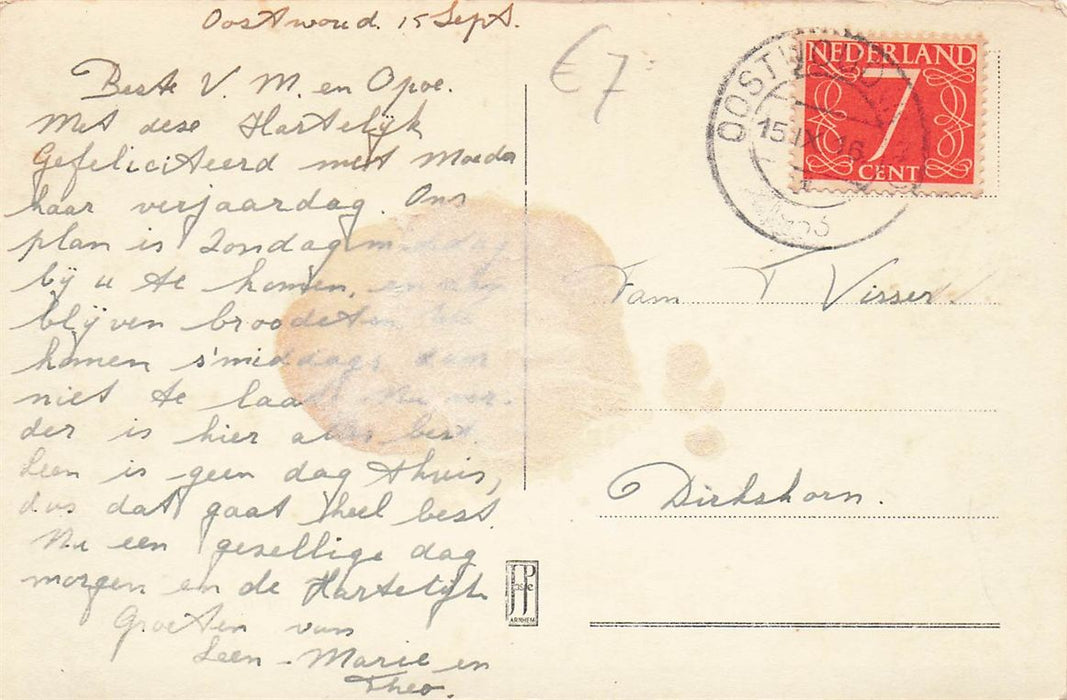 Oostwoud. 15 Sept.
Beste V. M. en Opoe.
Met deze Hartelijk
Gefeliciteerd met Moeder
haar verjaardag. Ons
plan is Zondagmiddag
bij u te komen, en
blijven broodeten
komen s'middags dan
niet te laat. Nu ver-
der is hier alles best.
Leen is geen dag thuis,
dus dat gaat heel best.
Nu een gezellige dag
morgen en de Hartelijk
Groeten van
Leen - Marie en
Theo.
€ 7
NEDERLAND
7
CENT
15 IX 16
Fam T Visser
Dirkshorn.
JP
ARNHEM